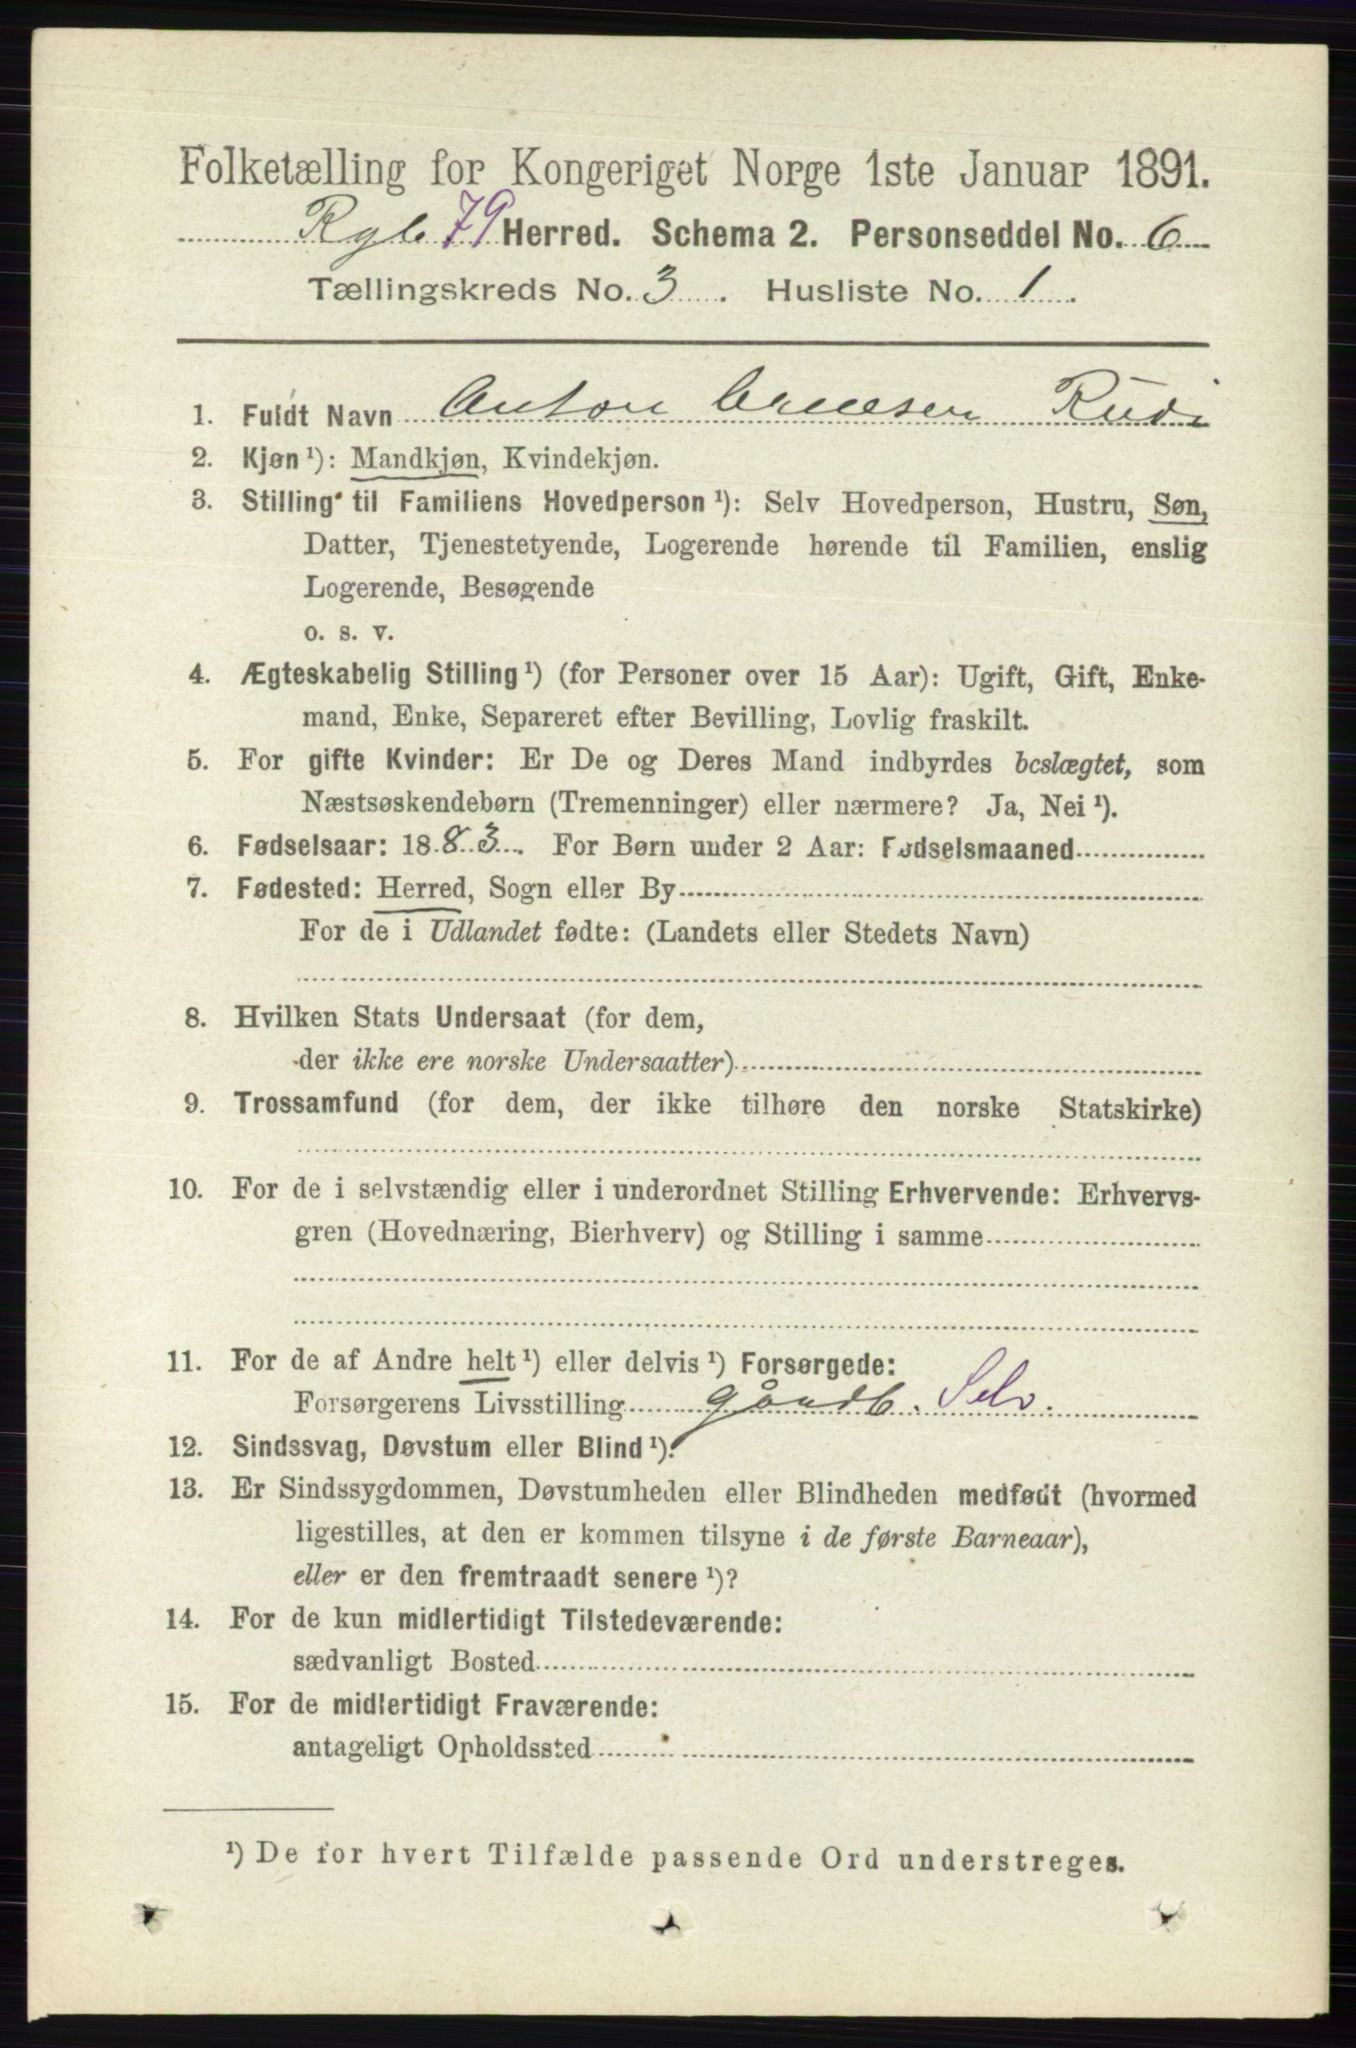 Folketælling for Kongeriget Norge 1ste Januar 1891.
Rgb 79 Herred. Schema 2. Personseddel No. 6
Tællingskreds No. 3. Husliste No. 1.
1. Fuldt Navn Anton Rudi
2. Kjøn¹): Mandkjøn, Kvindekjøn.
3. Stilling til Familiens Hovedperson¹): Selv Hovedperson, Hustru, Søn,
Datter, Tjenestetyende, Logerende hørende til Familien, enslig
Logerende, Besøgende
o. s. v.
4. Ægteskabelig Stilling¹) (for Personer over 15 Aar): Ugift, Gift, Enke-
mand, Enke, Separeret efter Bevilling, Lovlig fraskilt.
5. For gifte Kvinder: Er De og Deres Mand indbyrdes beslægtet, som
Næstsøskendebørn (Tremenninger) eller nærmere? Ja, Nei¹).
6. Fødselsaar: 1883. For Børn under 2 Aar: Fødselsmaaned
7. Fødested: Herred, Sogn eller By
For de i Udlandet fødte: (Landets eller Stedets Navn)
8. Hvilken Stats Undersaat (for dem,
der ikke ere norske Undersaatter)
9. Trossamfund (for dem, der ikke tilhøre den norske Statskirke)
10. For de i selvstændig eller i underordnet Stilling Erhvervende: Erhvervs-
gren (Hovednæring, Bierhverv) og Stilling i samme
11. For de af Andre helt¹) eller delvis¹) Forsørgede:
Forsørgerens Livsstilling gårdb. Selv.
12. Sindssvag, Døvstum eller Blind¹).
13. Er Sindssygdommen, Døvstumheden eller Blindheden medfødt (hvormed
ligestilles, at den er kommen tilsyne i de første Barneaar),
eller er den fremtraadt senere¹)?
14. For de kun midlertidigt Tilstedeværende:
sædvanligt Bosted
15. For de midlertidigt Fraværende:
antageligt Opholdssted
¹) De for hvert Tilfælde passende Ord understreges.